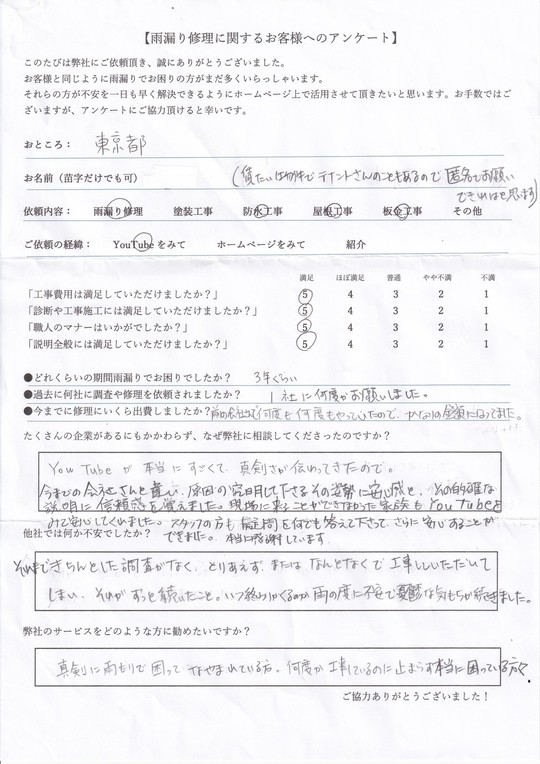 【雨漏り修理に関するお客様へのアンケート】
このたびは弊社にご依頼頂き、誠にありがとうございました。
お客様と同じように雨漏りでお困りの方がまだ多くいらっしゃいます。
それらの方が不安を一日も早く解決できるようにホームページ上で活用させて頂きたいと思います。お手数ではご
ざいますが、アンケートにご協力頂けると幸いです。
おところ： 東京都
お名前（苗字だけでも可） (賃たい物件で テナントさんのこともあるので 匿名でお願い
できればと思います)
依頼内容： 雨漏り修理 塗装工事 防水工事 屋根工事 板金工事 その他
ご依頼の経緯： YouTubeをみて ホームページをみて 紹介
満足 ほぼ満足 普通 やや不満 不満
「工事費用は満足していただけましたか？」 5 4 3 2 1
「診断や工事施工には満足していただけましたか？」 5 4 3 2 1
「職人のマナーはいかがでしたか？」 5 4 3 2 1
「説明全般には満足していただけましたか？」 5 4 3 2 1
●どれくらいの期間雨漏りでお困りでしたか？ 3年くらい
●過去に何社に調査や修理を依頼されましたか？ 1社に何度かお願いしました。
●今までに修理にいくら出費しましたか？ 前の会社で何度も何度もやっていたので、かなりの金額になってました。
たくさんの企業があるにもかかわらず、なぜ弊社に相談してくださったのですか？
YouTubeが本当にすごくて、真剣さが伝わってきたので。
今までの会社さんと違い、原因の究明して下さるその姿勢に安心感と、その的確な
説明に信頼感を覚えました。現場に来ることができなかった家族もYouTubeを
みて安心してくれました。スタッフの方も疑問を何でも答えて下さって、さらに安心することが
できました。本当に感謝しています。
他社では何か不安でしたか？
それまできちんとした調査がなく、とりあえず、または なんとなくで工事していただいて
しまい、それがずっと続いたこと。いつ終わりがくるのか雨の度に不安で憂鬱な気もちが続きました。
弊社のサービスをどのような方に勧めたいですか？
真剣に雨もりで困って なやまれている方。何度か工事しているのに止まらず本当に困っている方々
ご協力ありがとうございました！